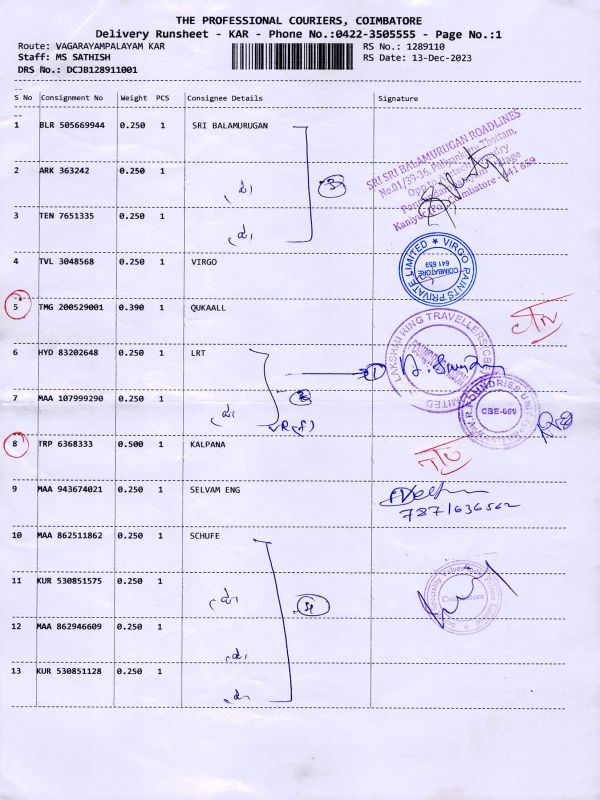 THE PROFESSIONAL COURIERS, COIMBATORE
Delivery Runsheet - KAR - Phone No.:0422-3505555 - Page No.:1
Route: VAGARAYAMPALAYAM KAR RS No.: 1289110
Staff: MS SATHISH RS Date: 13-Dec-2023
DRS No.: DCJB128911001
S No Consignment No Weight PCS Consignee Details Signature
1 BLR 505669944 0.250 1 SRI BALAMURUGAN
SRI SRI BALAMURUGAN ROADLINES
2 ARK 363242 0.250 1
3 TEN 7651335 0.250 1
4 TVL 3048568 0.250 1 VIRGO
VIRGO PAINTS PRIVATE LIMITED
COIMBATORE
641 659
5 TMG 200529001 0.390 1 QUKAALL
6 HYD 83202648 0.250 1 LRT
LAKSHMI RING TRAVELLERS (CBE) LIMITED
7 MAA 107999290 0.250 1
CBE-659
8 TRP 6368333 0.500 1 KALPANA
9 MAA 943674021 0.250 1 SELVAM ENG
10 MAA 862511862 0.250 1 SCHUFE
11 KUR 530851575 0.250 1
Coimbatore
12 MAA 862946609 0.250 1
13 KUR 530851128 0.250 1